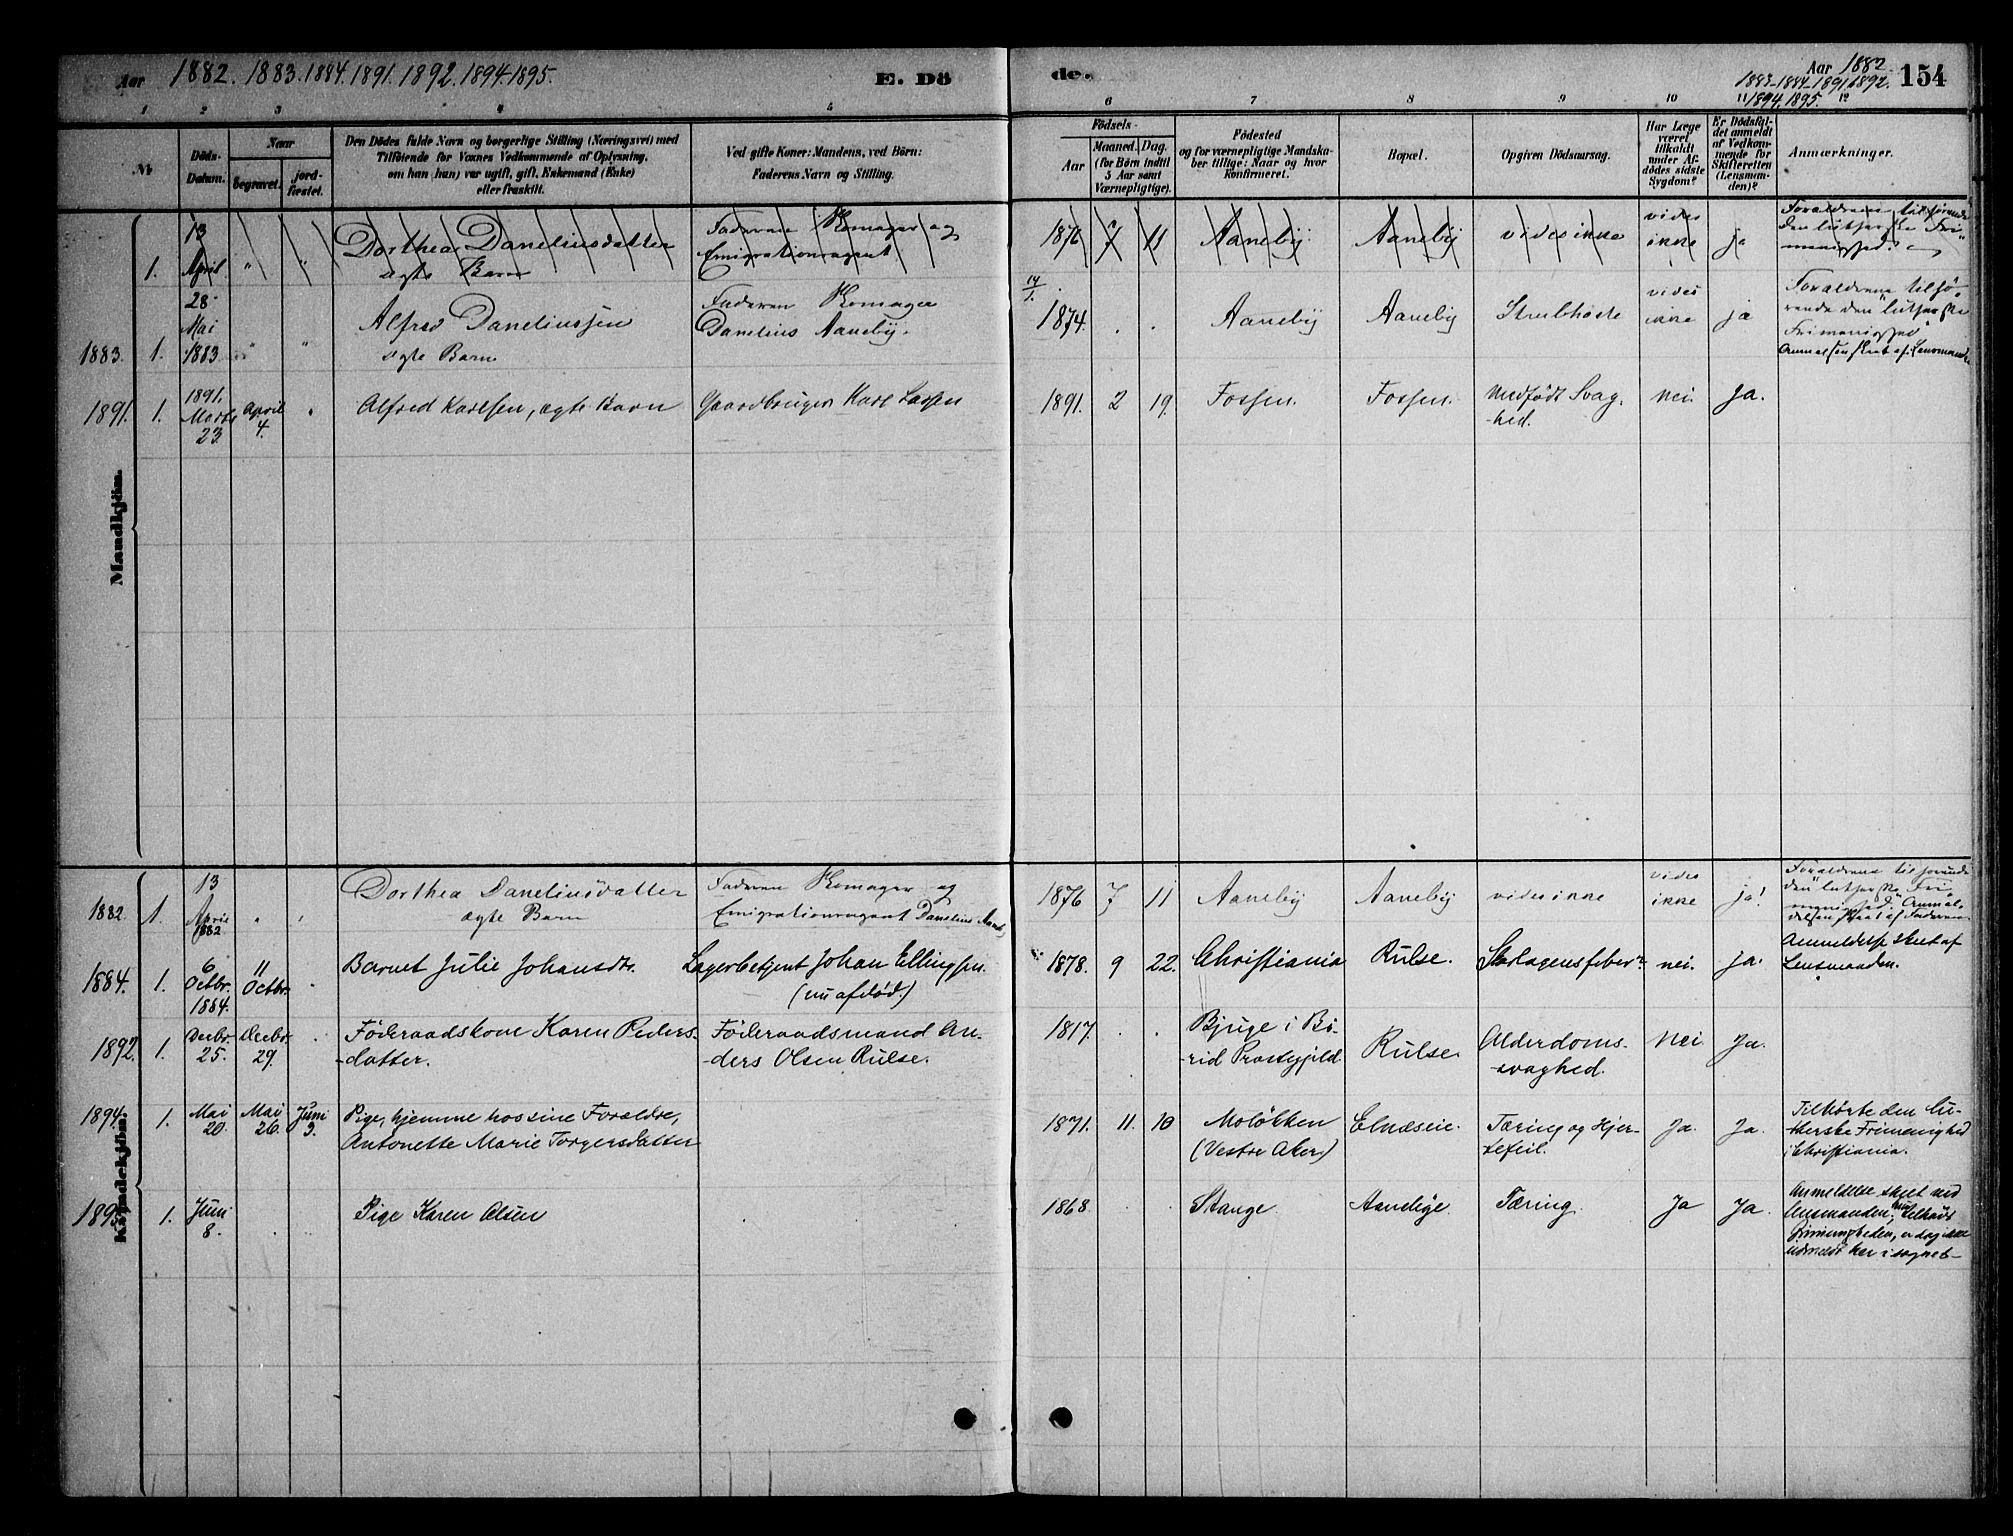 Aar 1882. 1883. 1884. 1891. 1892. 1894. 1895.
E. Dö
de.
Aar 1882.
1883-1884-1891 1892.
1894, 1895.
154
1 2 3 4 5 6 7 8 9 10 11 12
No
Döds-
Datum.
Naar
begravet.
jord-
fæstet.
Den Dödes fulde Navn og borgerlige Stilling (Næringsvei) med
Tilföiende for Voxnes Vedkommende af Oplysning,
om han (hun) var ugift, gift, Enkemand (Enke)
eller fraskilt.
Ved gifte Koner: Mandens, ved Börn:
Faderens Navn og Stilling.
Födsels-
Aar
Maaned. Dag.
(for Börn indtil
5 Aar samt
Værnepligtige).
Födested
og for værnepligtige Mandska-
ber tillige: Naar og hvor
konfirmeret.
Bopæl.
Opgiven Dödsaarsag.
Har Læge
været
tilkaldt
under Af-
dödes sidste
Sygdom?
Er Dödsfal-
det anmeldt
af Vedkom-
mende for
Skifteretten
(Lensman-
den)?
Anmærkninger.
Mandkjön.
1. 13 April " " Dorthea Daneliusdatter
ægte Barn
Faderen Skomager og
Emigrationsagent
1876 7 11 Aaneby. Aaneby vides ikke
vides
ikke
ja
Forældrene tilhørende
den lutherske Fri-
menighed.
1883. 1. 28 Mai 1883 " " Alfred Danelinssen
ægte Barn
Faderen Skomager
Danelius Aaneby.
14/1.
1874. . . Aaneby Aaneby Strubhoste
vides
ikke
ja
Forældrene tilhø-
rende den lutherske
Frimenighed
Anmeldelsen skeet af Lensmanden
1891. 1. 1891. Marts 23. April 4. " Alfred Karlsen, ægte Barn Gaardbruger Karl Larsen
1891. 2 19. Fossen. Fossen. Medfödt Svag-
-hed.
Nei. Ja.
Kvindekjön.
1882. 1. 13 April 1882 " " Dorthea Daneliusdatter
ægte Barn
Faderen Skomager og
Emigrationsagent Danelius Aaneby
1876 7 11 Aaneby Aaneby vides ikke
vides
ikke
ja!
Forældrene tilhørende
den lutherske Fri-
menighed. Anmel-
delsen skeet af Faderen
1884. 1. 6 Octbr. 1884. 11 Octbr. . Barnet Julie Johansdtr. Lagerbetjent Johan Ellingsen.
(nu afdöd)
1878. 9 22. Christiania Rulse. Skarlagensfeber. nei. ja.
Anmeldelse skeet af
Lensmanden.
1892. 1. Decbr. 25. Decbr. 29. . Föderaadskone Karen Peders-
-datter.
Föderaadsmand An-
ders Olsen Rulse.
1817. . . Bjuge i Bi-
rid Prestegjeld.
Rulse Alderdoms-
-svaghed.
Nei. Ja.
1894. 1. Mai 20. Mai 26. Juni 3. Pige, hjemme hos sine Forældre,
Antonette Marie Torgersdatter
1871. 11. 10 Moløkken
(Vestre Aker)
Elnæseie. Tæring og Hjer-
tefeil.
Ja. Ja.
Tilhørte den lu-
therske Frimenighed
i Christiania.
1895. 1. Juni 8. . . Pige Karen Olsen
1868. . . Stange. Tæring. Ja Ja.
Anmeldelse skeet ved
Lensmanden; hun tilhørte
Frimenigheden, er dog ikke
udmeldt her i sognet-